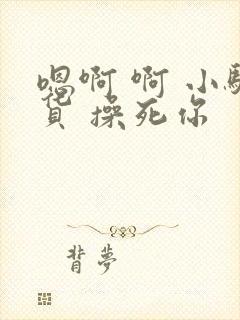 嗯啊 啊 小骚
货 操死你
背梦